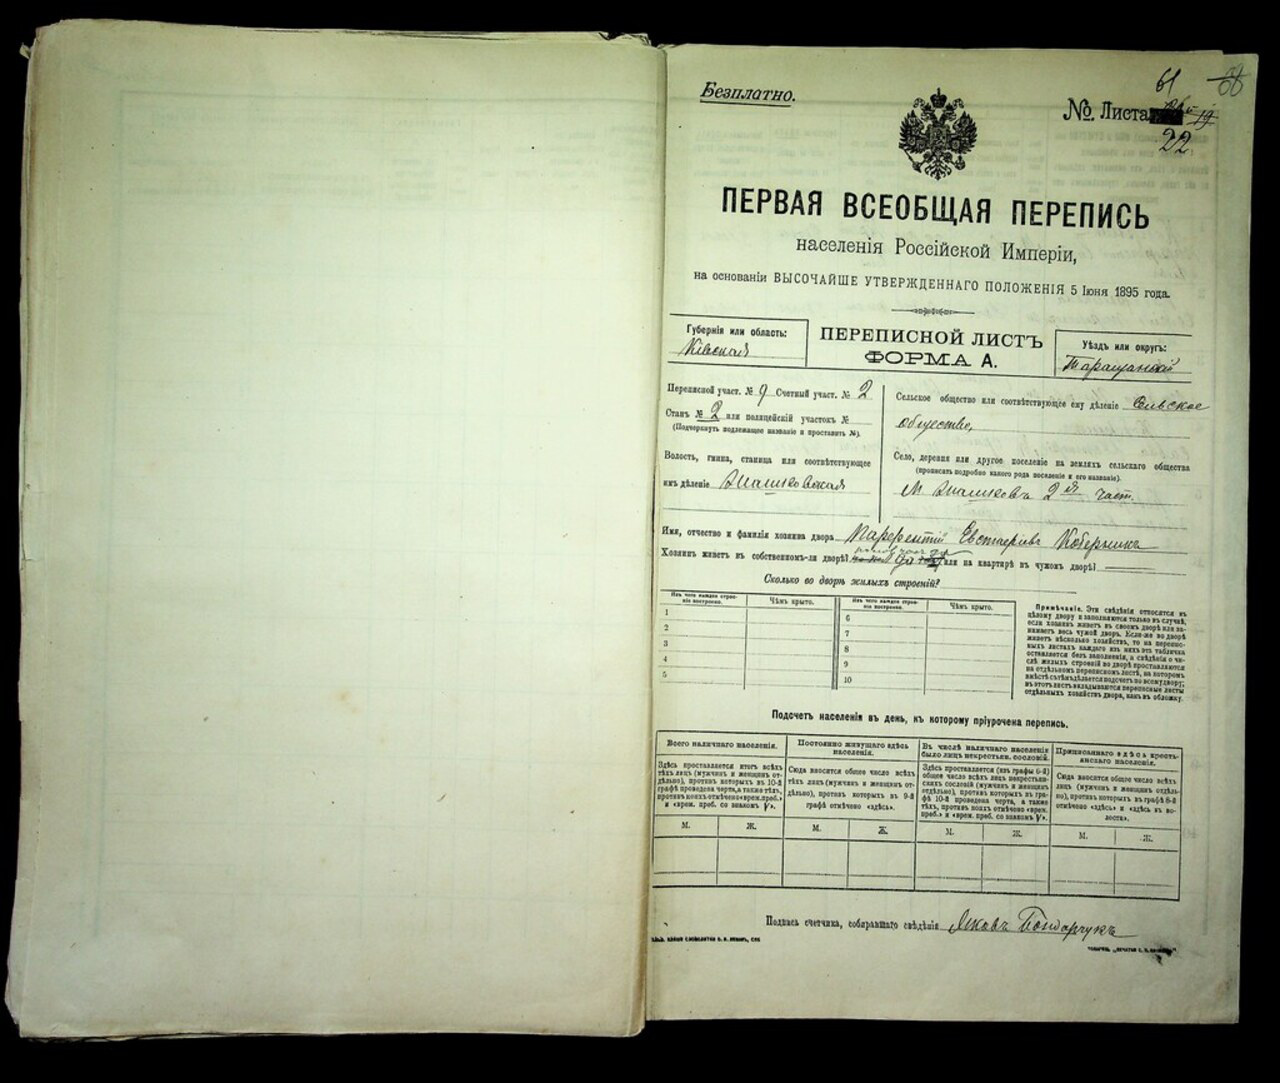 61 66
Безплатно.
№. Листа 19
22
ПЕРВАЯ ВСЕОБЩАЯ ПЕРЕПИСЬ
населенія Россійской Имперіи,
на основаніи ВЫСОЧАЙШЕ УТВЕРЖДЕННАГО ПОЛОЖЕНІЯ 5 Іюня 1895 года.
Губернія или область:
Кіевская
ПЕРЕПИСНОЙ ЛИСТЪ
ФОРМА А.
Уѣздъ или округъ:
Таращанскій
Переписной участ. № 9 Счетный участ. № 2
Станъ № 2 или полицейскій участокъ №
(Подчеркнуть подлежащее названіе и проставить №).
Волость, гмина, станица или соотвѣтствующее
имъ дѣленіе
Сельское общество или соотвѣтствующее ему дѣленіе
общество,
Село, деревня или другое поселеніе на земляхъ сельскаго общества
(прописать подробно какого рода поселеніе и его названіе).
М 2й част.
Имя, отчество и фамилія хозяина двора Евстафіевъ Коберникъ
Хозяинъ живетъ въ собственномъ-ли дворѣ? или на квартирѣ въ чужомъ дворѣ?
Сколько во дворѣ жилыхъ строеній?
Изъ чего каждое строеніе построено. Чѣмъ крыто. Изъ чего каждое строеніе построено. Чѣмъ крыто.
1 6
2 7
3 8
4 9
5 10
Примѣчаніе. Эти свѣдѣнія относятся къ
цѣлому двору и заполняются только въ случаѣ,
если хозяинъ живетъ въ своемъ дворѣ или занимаетъ
весь чужой дворъ. Если-же во дворѣ
живетъ нѣсколько хозяйствъ, то на переписныхъ
листахъ каждаго изъ нихъ эта табличка
оставляется безъ заполненія, а свѣдѣнія о числѣ
жилыхъ строеній во дворѣ проставляются
на отдѣльномъ переписномъ листѣ, на которомъ
вмѣстѣ съ тѣмъ дѣлается подсчетъ по всему двору;
въ этотъ листъ вкладываются переписные листы
отдѣльныхъ хозяйствъ двора, какъ въ обложку.
Подсчетъ населенія въ день, къ которому пріурочена перепись.
Всего наличнаго населенія.
Здѣсь проставляется итогъ всѣхъ
тѣхъ лицъ (мужчинъ и женщинъ отдѣльно),
противъ которыхъ въ 10-й
графѣ проведена черта, а также тѣхъ,
противъ коихъ отмѣчено «врем. преб.»
и «врем. преб. со знакомъ V».
М. Ж.
Постоянно живущаго здѣсь
населенія.
Сюда вносится общее число всѣхъ
тѣхъ лицъ (мужчинъ и женщинъ отдѣльно),
противъ которыхъ въ 9-й
графѣ отмѣчено «здѣсь».
М. Ж.
Въ числѣ наличнаго населенія
было лицъ некрестьян. сословій.
Здѣсь проставляется (изъ графы 6-й)
общее число всѣхъ лицъ некрестьянскихъ
сословій (мужчинъ и женщинъ
отдѣльно), противъ которыхъ въ графѣ
10-й проведена черта, а также
тѣхъ, противъ коихъ отмѣчено «врем.
преб.» и «врем. преб. со знакомъ V».
М. Ж.
Приписаннаго здѣсь крестьянскаго
населенія.
Сюда вносится общее число всѣхъ
лицъ (мужчинъ и женщинъ отдѣльно),
противъ которыхъ въ графѣ 8-й
отмѣчено «здѣсь» и «здѣсь въ волости».
М. Ж.
Подпись счетчика, собиравшаго свѣдѣнія Яковъ Бондарчукъ